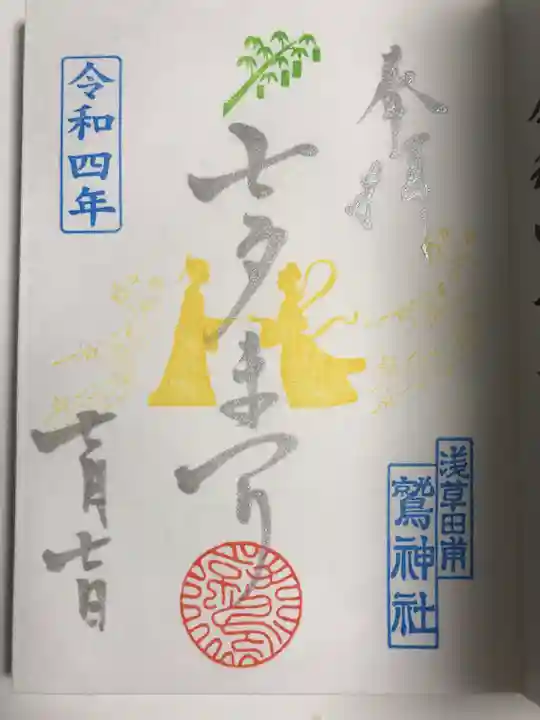 奉拝
浅草田甫
鷲神社
七夕まつり
令和四年
七月七日